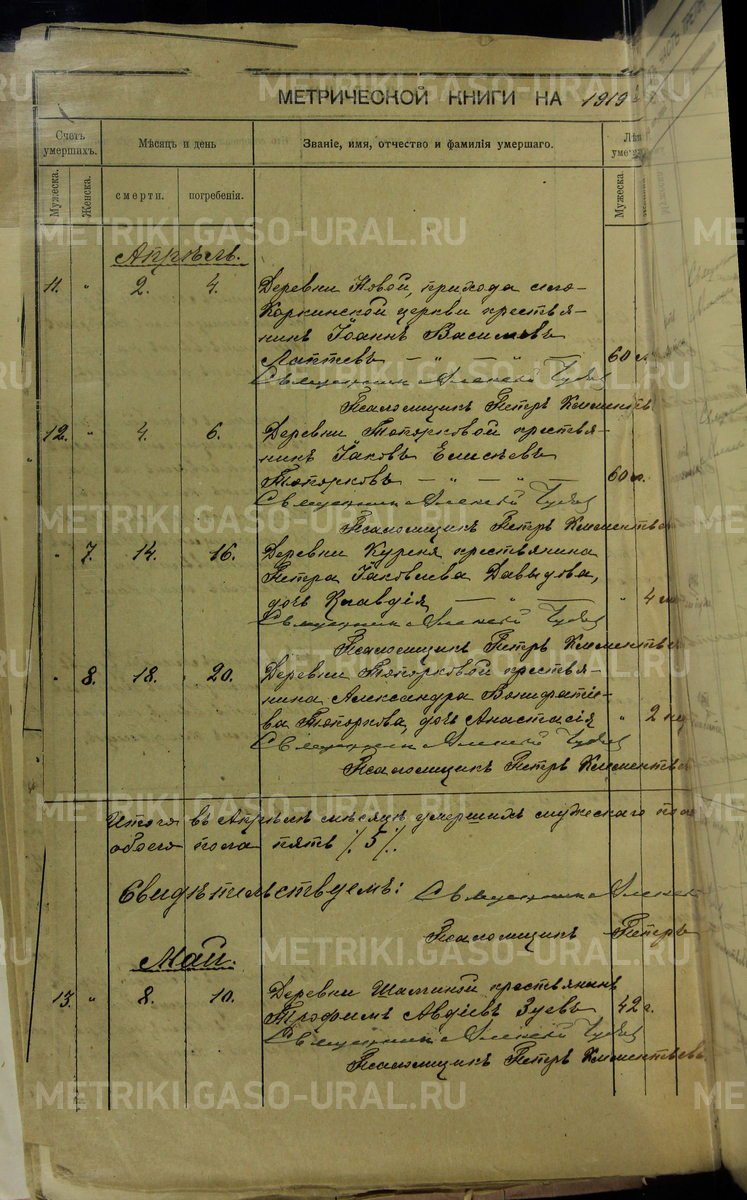 МЕТРИЧЕСКОЙ КНИГИ НА 1919
Счетъ умершихъ.
Мѣсяцъ и день
Званіе, имя, отчество и фамилія умершаго.
Мужеска.
Женска.
смерти.
погребенія.
Мужеска
Апрѣль.
11. " 2. 4. Деревни Новой, прихода
Каркинской церкви крестья-
нинъ Іоаннъ Васильевъ
Лаптевъ — " — " — 60 л.
Священникъ Алексій
Псаломщикъ Петръ Клементь
12. " 4. 6. Деревни Топорковой крестья-
нинъ Іаковъ Елисѣевъ
Топорковъ — " — " — 60 л.
Священникъ Алексій
Псаломщикъ Петръ Клементьев
" 7. 14. 16. Деревни Куреня крестьянина
Петра Іаковлева Давыдова,
дочь Клавдія — " — " 4
Священникъ Алексій
Псаломщикъ Петръ Клементьев
" 8. 18. 20. Деревни Топорковой крестья-
нина Александра Вонифатіе-
ва Топоркова, дочь Анастасія " 2 нед
Священникъ Алексій
Псаломщикъ Петръ Клементьев
Итого въ Апрѣлѣ мѣсяцѣ умершихъ мужескаго пола
обоего пола пять /5/.
Свидѣтельствуемъ: Священникъ Алексій
Псаломщикъ Петръ
Май.
13. " 8. 10. Деревни Шаминой крестьянинъ
Трофимъ Авдіевъ Зуевъ 42 г.
Священникъ Алексій
Псаломщикъ Петръ Клементьевъ
METRIKI.GASO-URAL.RU